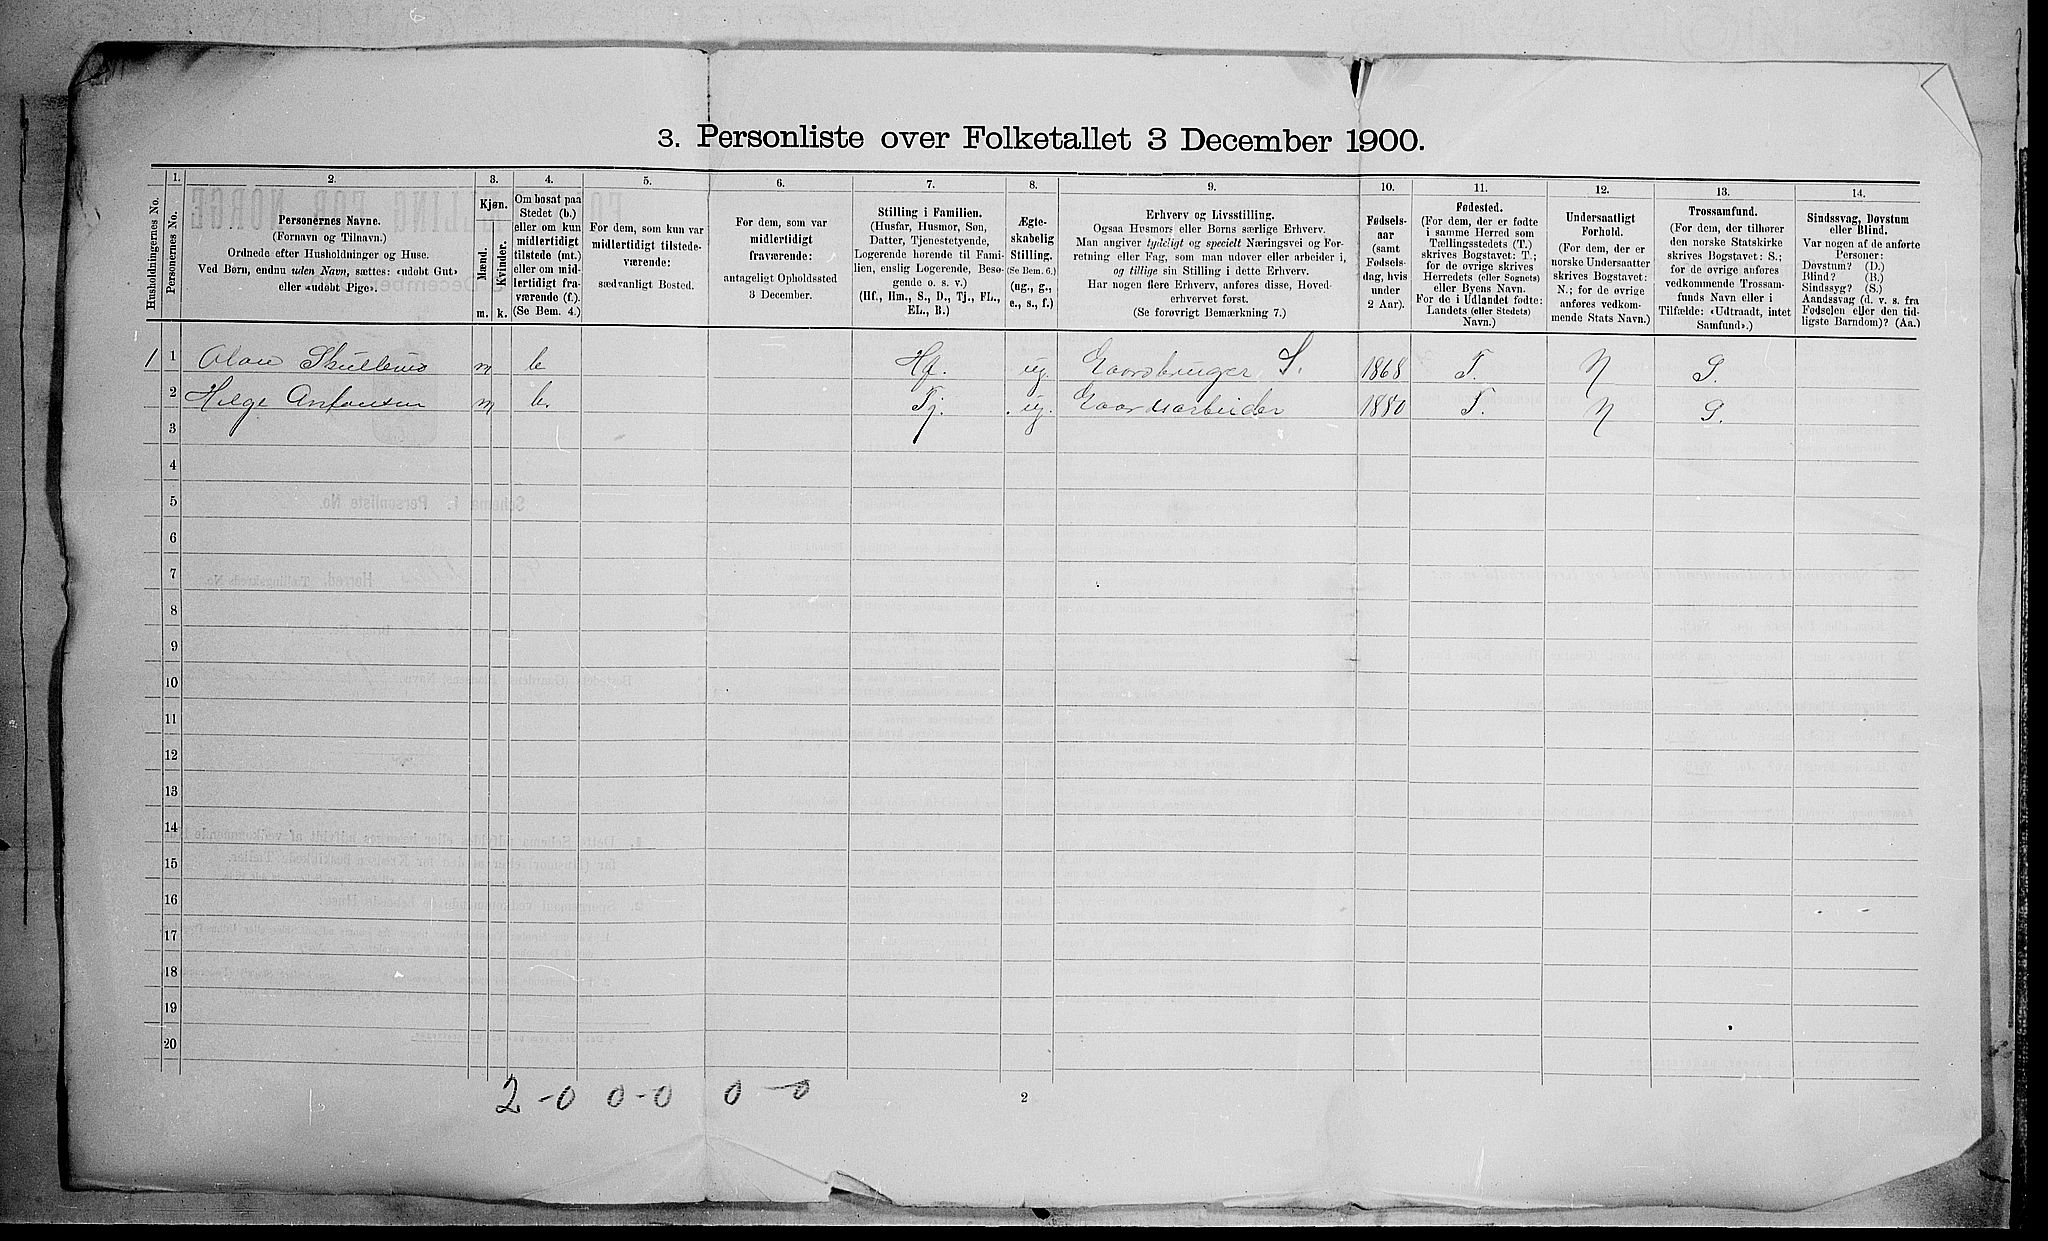 3. Personliste over Folketallet 3 December 1900.
Husholdningernes No.
1.
Personernes No.
2.
Personernes Navne.
(Fornavn og Tilnavn.)
Ordnede efter Husholdninger og Huse.
Ved Børn, endnu uden Navn, sættes: «udøbt Gut»
eller «udøbt Pige».
3.
Kjøn.
Mænd.
Kvinder.
m. k.
4.
Om bosat paa
Stedet (b.)
eller om kun
midlertidigt
tilstede (mt.)
eller om mid-
lertidigt fra-
værende (f.).
(Se Bem. 4.)
5.
For dem, som kun var
midlertidigt tilstede-
værende:
sædvanligt Bosted.
6.
For dem, som var
midlertidigt
fraværende:
antageligt Opholdssted
3 December.
7.
Stilling i Familien.
(Husfar, Husmor, Søn,
Datter, Tjenestetyende,
Logerende hørende til Fami-
lien, enslig Logerende, Besø-
gende o. s. v.)
(Hf., Hm., S., D., Tj., FL.,
EL., B.)
8.
Ægte-
skabelig
Stilling.
(Se Bem. 6.)
(ug., g.,
e., s., f.)
9.
Erhverv og Livsstilling.
Ogsaa Husmors eller Børns særlige Erhverv.
Man angiver tydeligt og specielt Næringsvei og For-
retning eller Fag, som man udøver eller arbeider i,
og tillige sin Stilling i dette Erhverv.
Har nogen flere Erhverv, anføres disse, Hoved-
erhvervet først.
(Se forøvrigt Bemærkning 7.)
10.
Fødsels-
aar
(samt
Fødsels-
dag, hvis
under
2 Aar).
11.
Fødested.
(For dem, der er fødte
i samme Herred som
Tællingsstedets (T.)
skrives Bogstavet: T.;
for de øvrige skrives
Herredets (eller Sognets)
eller Byens Navn.
For de i Udlandet fødte:
Landets (eller Stedets)
Navn.)
12.
Undersaatligt
Forhold.
(For dem, der er
norske Undersaatter
skrives Bogstavet:
N.; for de øvrige
anføres vedkom-
mende Stats Navn.)
13.
Trossamfund.
(For dem, der tilhører
den norske Statskirke
skrives Bogstavet: S.;
for de øvrige anføres
vedkommende Trossam-
funds Navn eller i
Tilfælde: «Udtraadt, intet
Samfund».)
14.
Sindssvag, Døvstum
eller Blind.
Var nogen af de anførte
Personer:
Døvstum? (D.)
Blind? (B.)
Sindssyg? (S.)
Aandssvag (d. v. s. fra
Fødselen eller den tid-
ligste Barndom)? (Aa.)
1 1 m b Hf. ug. Gaardbruger S. 1868 T. N S.
2 Helge Antonsen m b. Tj. ug. Gaardsarbeider 1880 T. N S.
3
4
5
6
7
8
9
10
11
12
13
14
15
16
17
18
19
20
2-0 0-0 0-0
2